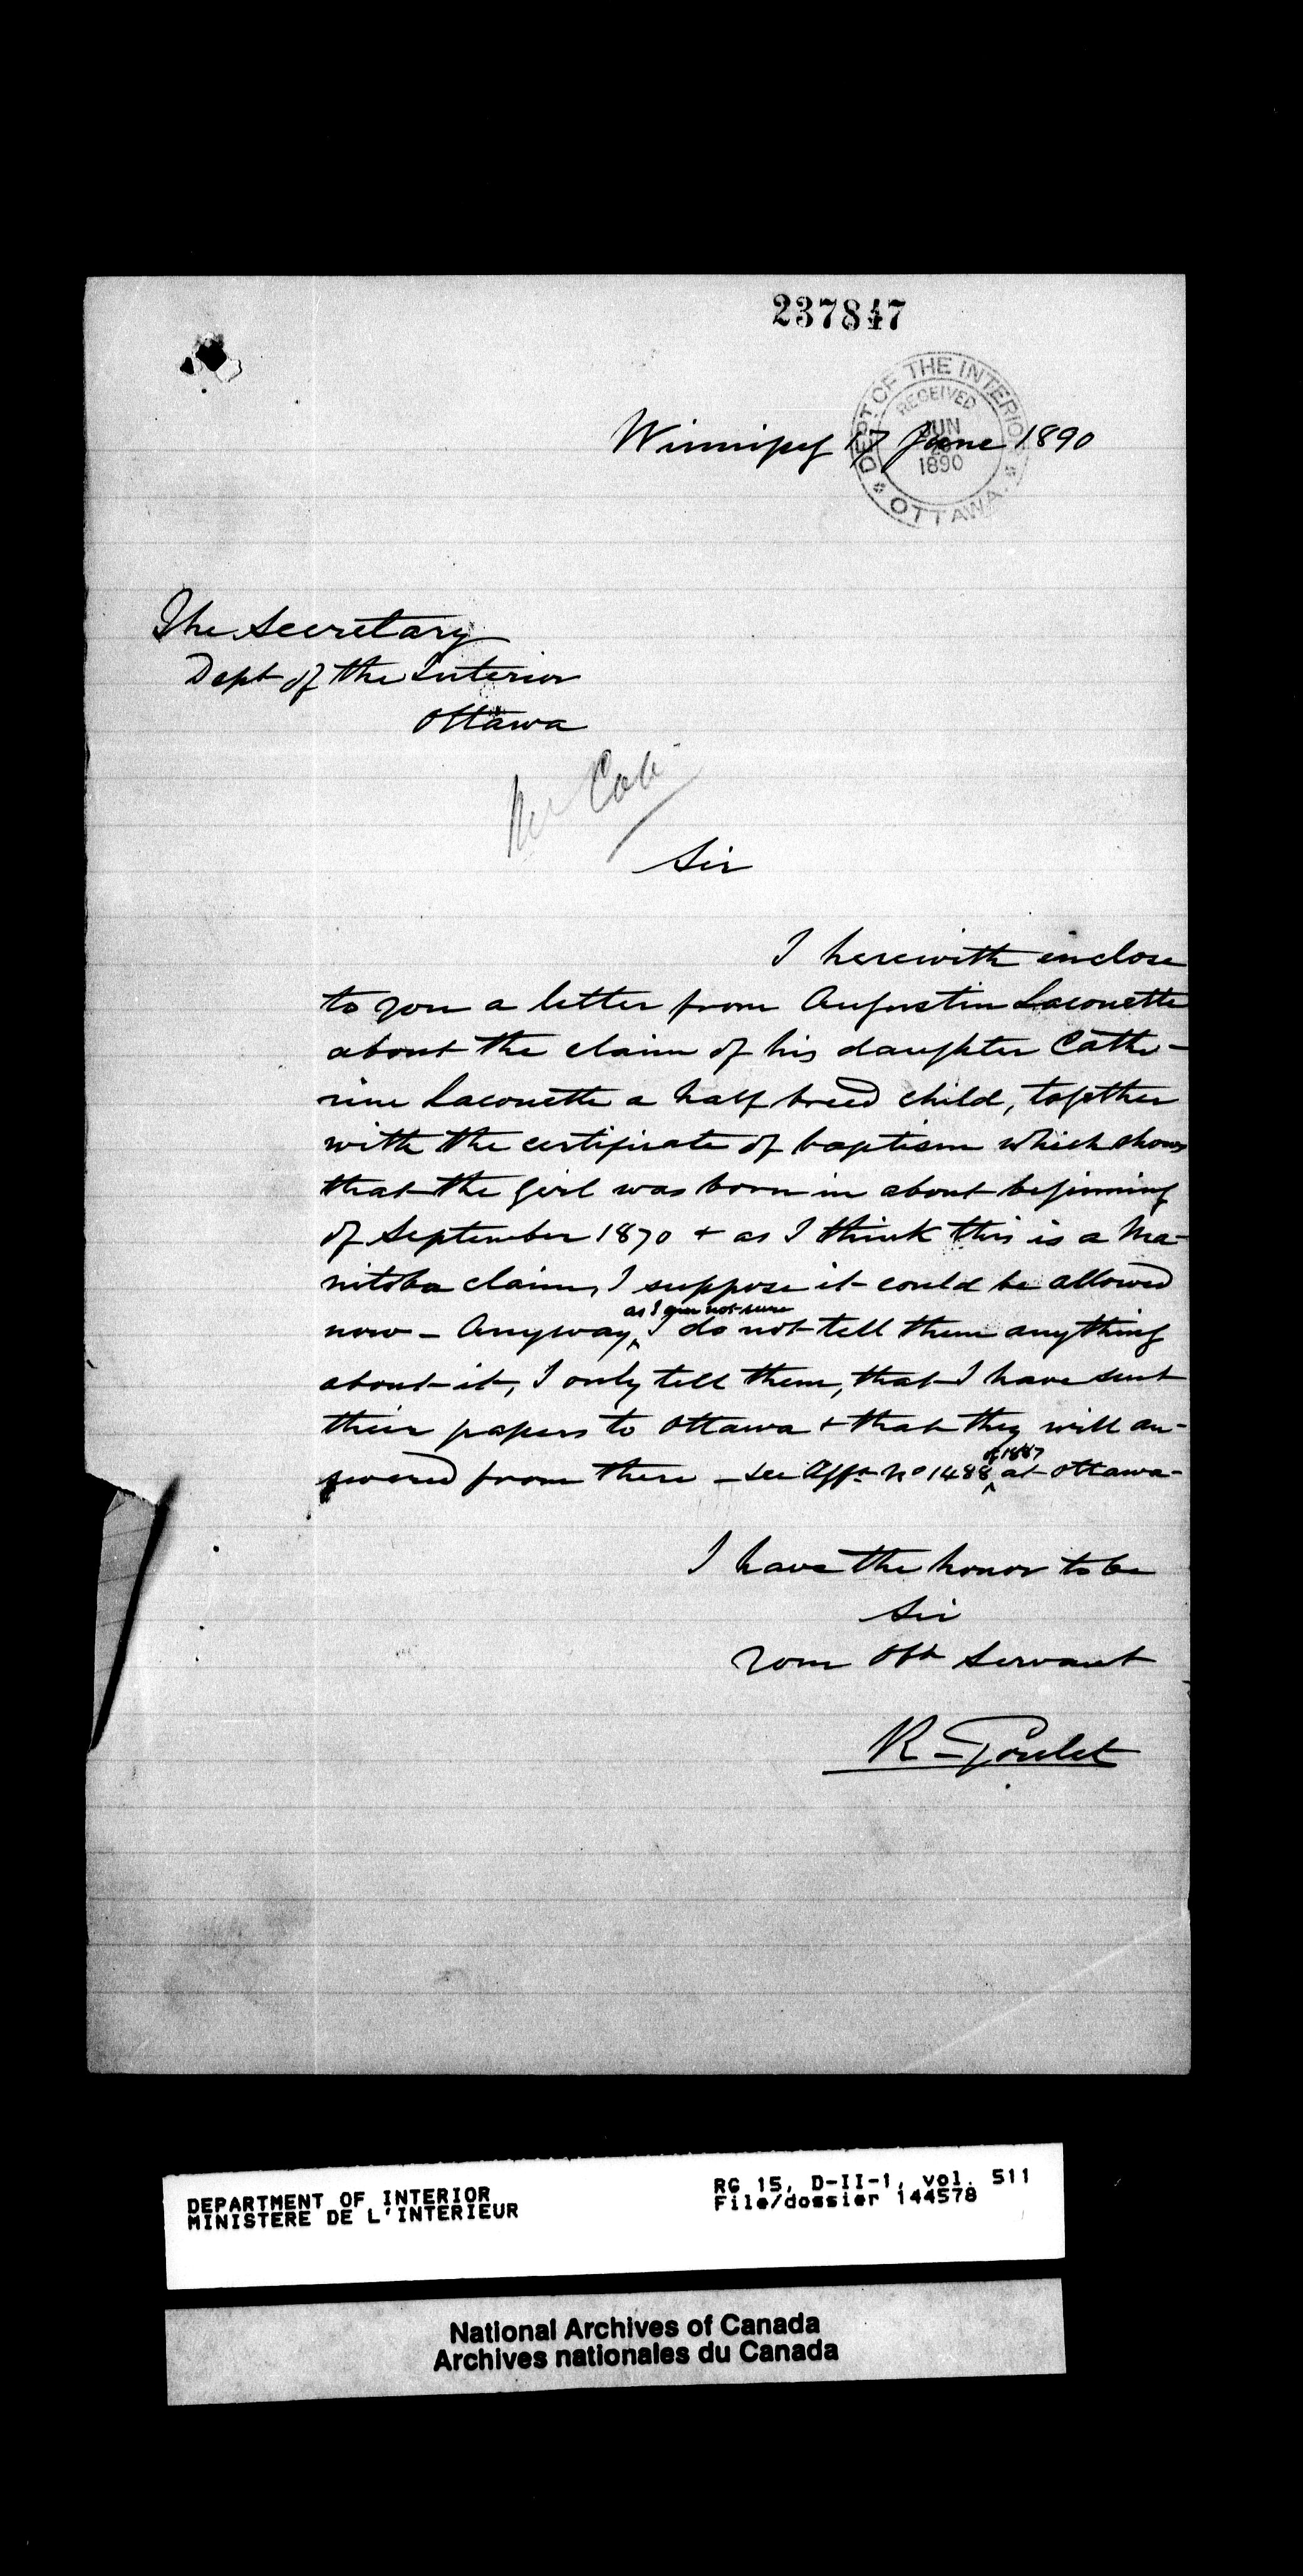 237847
DEPT OF THE INTERIOR
RECEIVED
JUN
1890
OTTAWA.
Winnipeg 17 June 1890
The Secretary
Dept of the Interior
Ottawa
Sir
I herewith inclose
to you a letter from Augustin Laconette
about the claim of his daughter Cathe-
rine Laconette a half breed child, together
with the certificate of baptism which shows
that the girl was born in about beginning
of September 1870 + as I think this is a Ma-
nitoba claim, I suppose it could be allowed
now - Anyway, as I am not sure I do not tell them anything
about it, I only tell them, that I have sent
their papers to Ottawa + that they will an-
swered from there - see Appn No 1488 of 1887 at Ottawa -
I have the honor to be
Sir
Your Obt Servant
R - Goulet
DEPARTMENT OF INTERIOR
MINISTERE DE L'INTERIEUR
RG 15, D-II-1, vol. 511
File/dossier 144578
National Archives of Canada
Archives nationales du Canada